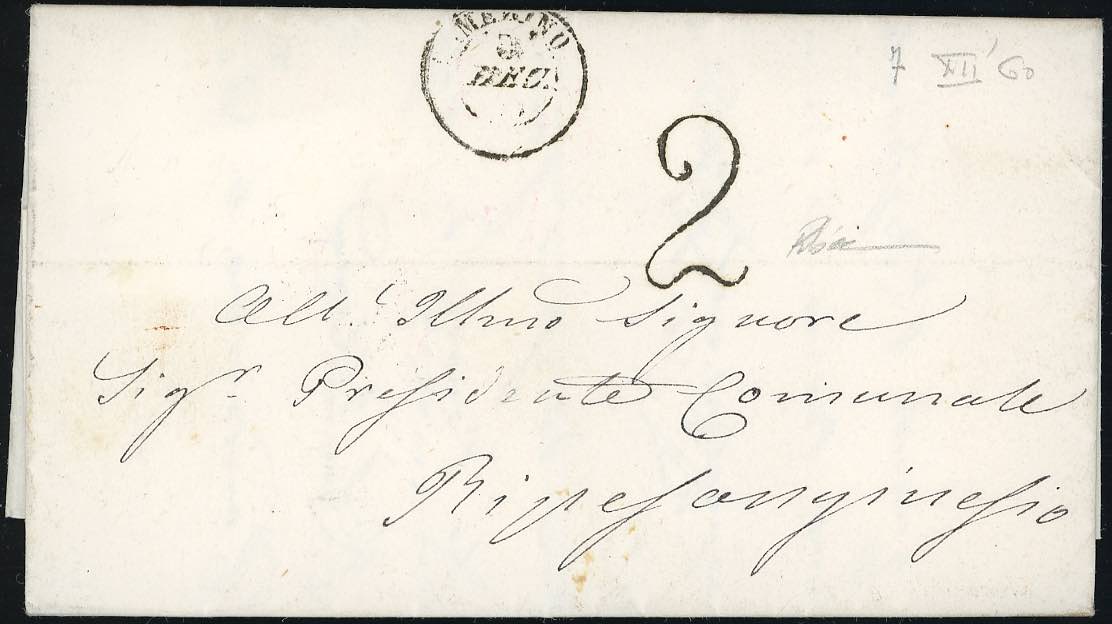 CAMERINO
DEC.
7 XII 60
2
All' Illmo Signore
Sigr. Presidente Comunale
Ripesanginesio